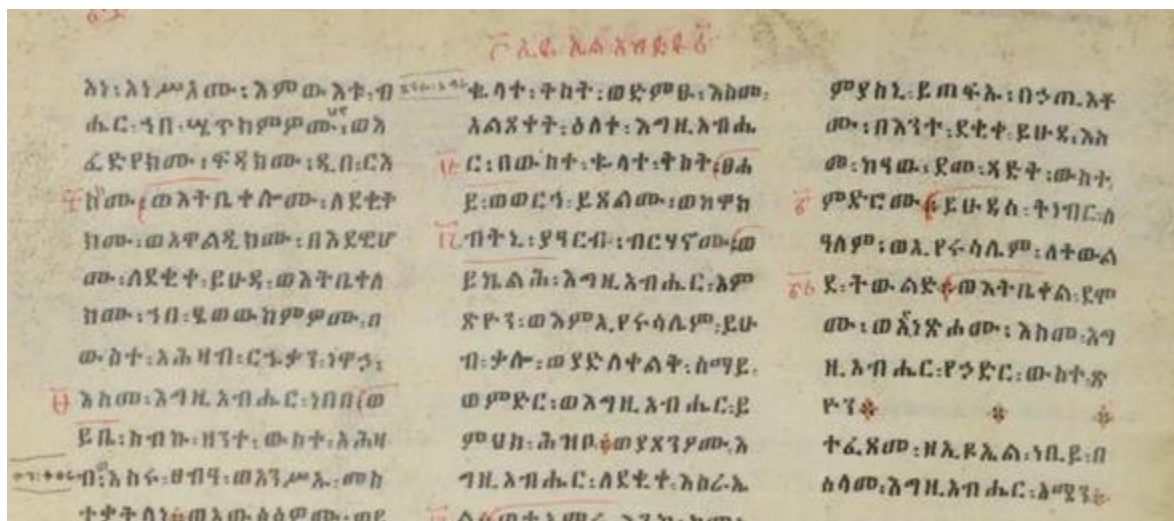 እነ፡እነሥአሙ፡እምውእቱ፡ብ
ሔር፡ኀበ፡ሤጥክምዎሙ፡ወእ
ፈድየክሙ፡ፍዳክሙ፡ዲበ፡ርእ
ስክሙ፡ወእትቤቀሎሙ፡ለደቂቅ
ክሙ፡ወአዋልዲክሙ፡በእደዊሆ
ሙ፡ለደቂቀ፡ይሁዳ፡ወእትቤቀለ
ክሙ፡ኀበ፡ፄወውክምዎሙ፡በ
ውስተ፡አሕዛብ፡ርኁቃን፡ነዋኃ፡
፰ እስመ፡እግዚአብሔር፡ነበበ፡ወ
ይቤ፡ስብኩ፡ዘንተ፡ውስተ፡አሕዛ
ብ፡አስሩ፡ፀብዓ፡ወአንሥኡ፡መስ
ቈላተ፡ቅስት፡ወድምፁ፡እስመ፡
አልጸቀት፡ዕለተ፡እግዚአብሔ
ር፡በውስተ፡ቈላተ፡ቅስት፡ፀሐ
ይ፡ወወርኅ፡ይጸልሙ፡ወከዋክ
ብትኒ፡ያዓርብ፡ብርሃኖሙ፡ወ
ይኬልሕ፡እግዚአብሔር፡እም
ጽዮን፡ወእምኢየሩሳሌም፡ይሁ
ብ፡ቃሎ፡ወያድለቀልቅ፡ሰማይ፡
ወምድር፡ወእግዚአብሔር፡ይ
ምህክ፡ሕዝቦ፡ወያጸንዖሙ፡እ
ግዚአብሔር፡ለደቂቀ፡እስራኤ
ምያስኒ፡ይጠፍኡ፡በኃጢአቶ
ሙ፡በእንተ፡ደቂቀ፡ይሁዳ፡እስ
መ፡ከዓው፡ደመ፡ጻድቅ፡ውስተ
ምድሮሙ፡ይሁዳስ፡ትነብር፡ለ
ዓለም፡ወኢየሩሳሌም፡ለትውል
ደ፡ትውልድ፡ወእትቤቀል፡ደሞ
ሙ፡ወእነጽሐሙ፡እስመ፡እግ
ዚአብሔር፡የኃድር፡ውስተ፡ጽ
ዮን
ተፈጸመ፡ዘኢዩኤል፡ነቢይ፡በ
ሰላመ፡እግዚአብሔር፡አሜን